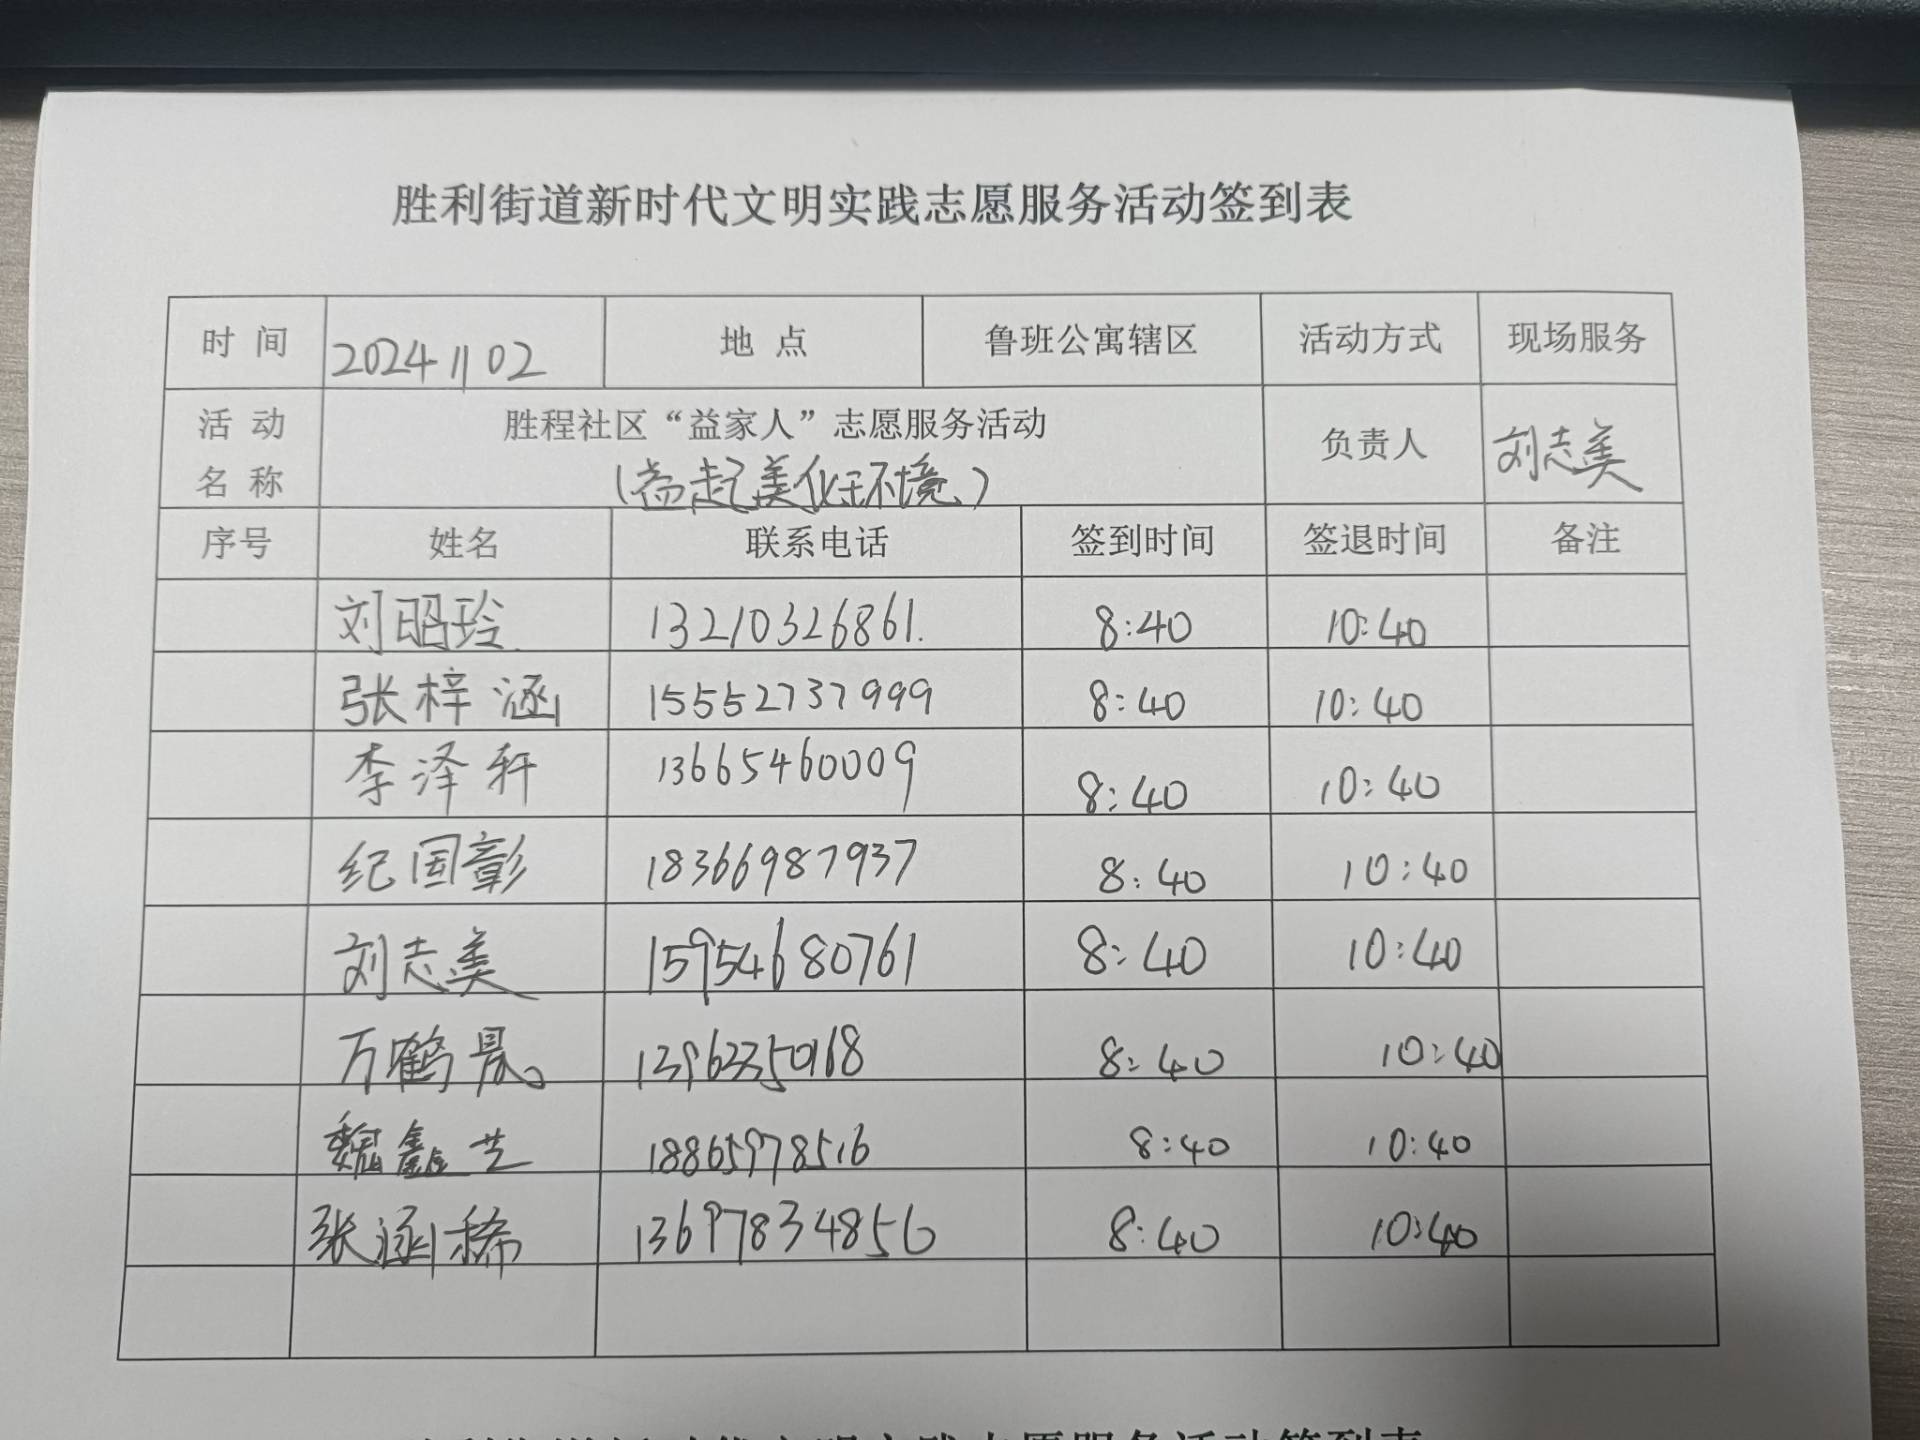 胜利街道新时代文明实践志愿服务活动签到表
时 间 20241102 地 点 鲁班公寓辖区 活动方式 现场服务
活 动 名 称 胜程社区“益家人”志愿服务活动 负责人 刘志美
(益起美化环境)
序号 姓名 联系电话 签到时间 签退时间 备注
刘昭玲 13210326861. 8:40 10:40
张梓涵 15552737999 8:40 10:40
李泽轩 13665460009 8:40 10:40
纪国彰 18366987937 8:40 10:40
刘志美 15954680761 8:40 10:40
万鹤 8:40 10:40
魏鑫芝 18865978516 8:40 10:40
张涵稀 13697834856 8:40 10:40